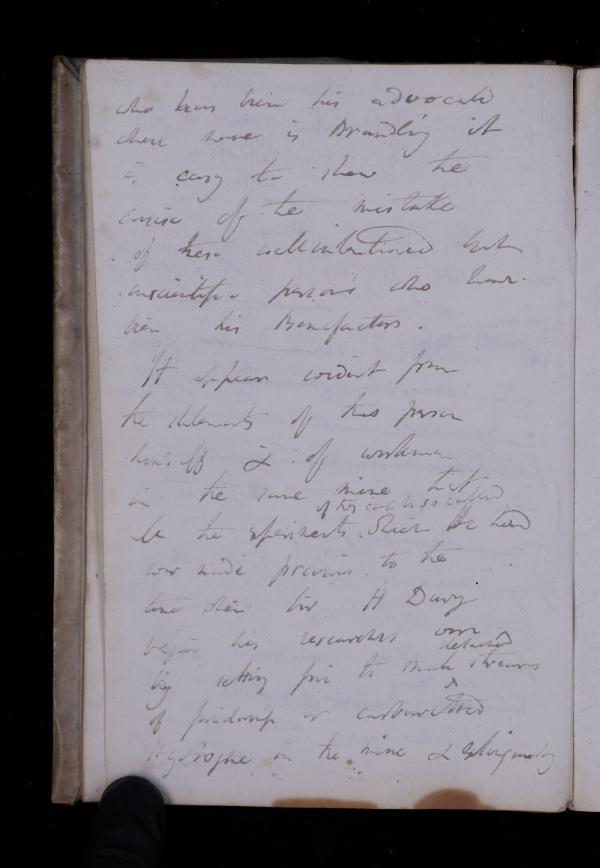 who have been his advocate
where none is Brandling it
is easy to shew the
cause of the mistake
of these wellintentioned but
unscientific persons who have
been his Benefactors.
It appears evident from
the statements of this person
himself & of workmen
in the same mine that
of they can be so called
all the experiments Which He had
ever made previous to the
time when Sir H Davy
began his researches were
detached
by setting fire to small streams
of firedamp or carburetted
Hydrogene in the mine & extinguishing